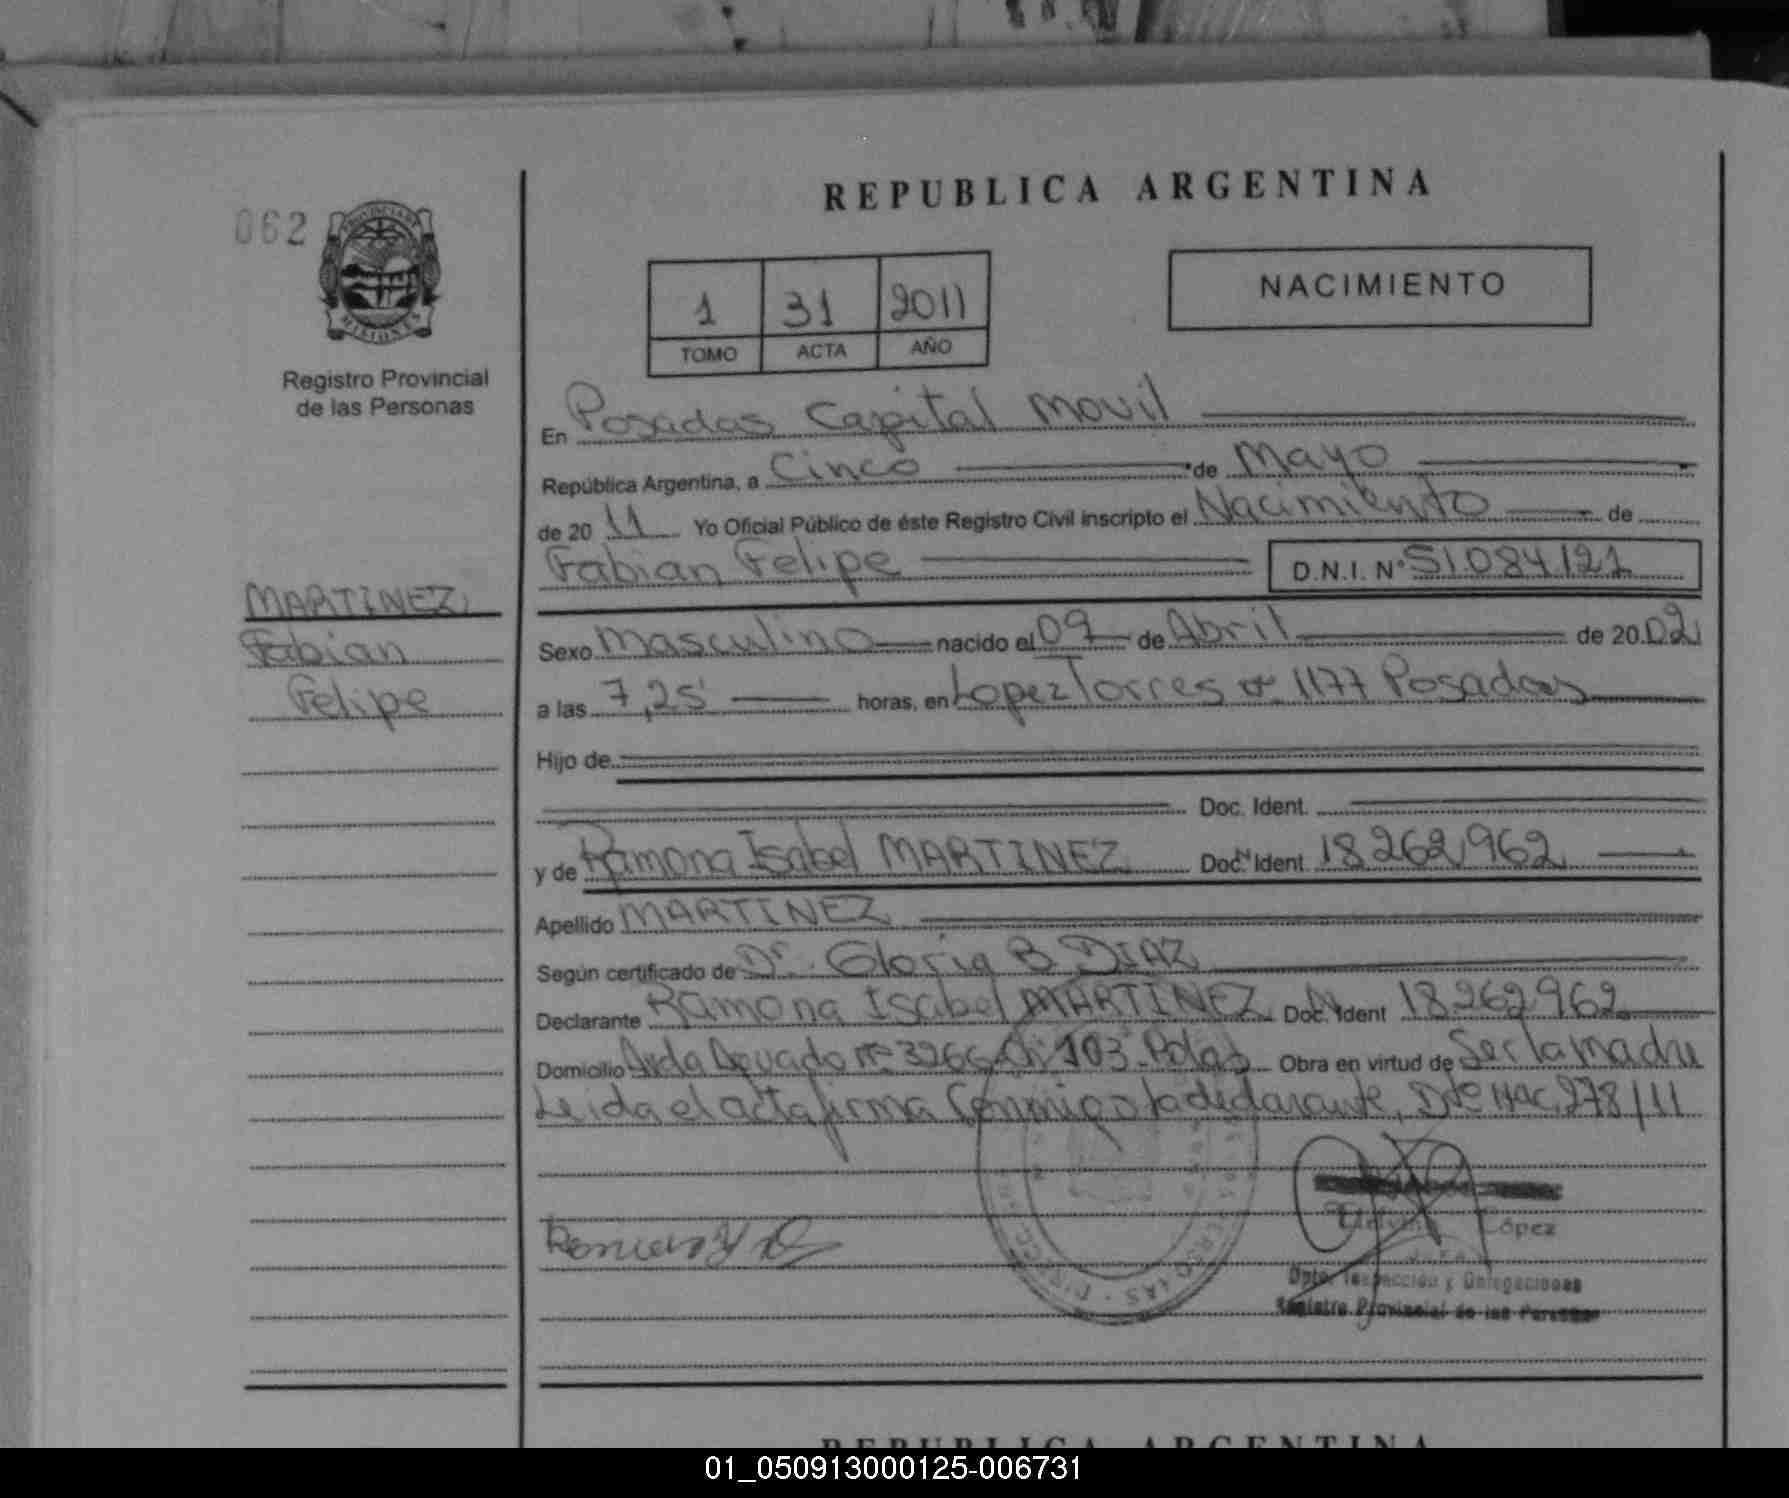 REPUBLICA ARGENTINA
062
PROVINCIA DE
MISIONES
Registro Provincial
de las Personas
1 31 2011
TOMO ACTA AÑO
NACIMIENTO
En Posadas Capital Movil
República Argentina, a Cinco de Mayo
de 20 11 Yo Oficial Público de éste Registro Civil inscripto el Nacimiento de
Fabian Felipe D.N.I. Nº 51.084.121
MARTINEZ
Fabian
Felipe
Sexo Masculino nacido el 09 de Abril de 20.02
a las 7,25' horas, en Lopez Torres nº 1177 Posadas
Hijo de
Doc. Ident.
y de Ramona Isabel MARTINEZ Doc. Ident. 18262962
Apellido MARTINEZ
Según certificado de Dr. Gloria B DIAZ
Declarante Ramona Isabel MARTINEZ Doc. Ident 18262962
Domicilio nº 3266 Ch 103 Pdas Obra en virtud de Ser la madre
Leida el acta firma Conmigo la declarante, Dte Nac. 278/11
López
JEFA
Dpto. Inspección y Delegaciones
Registro Provincial de las Personas
REPUBLICA ARGENTINA
01_050913000125-006731